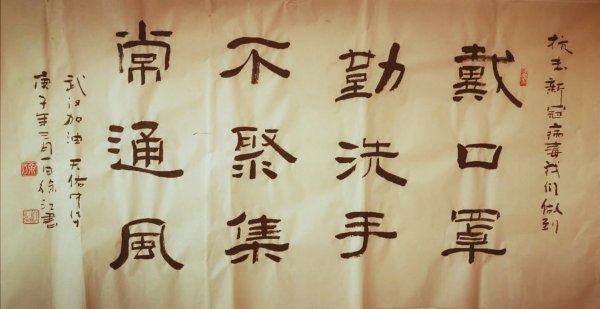 抗击新冠病毒我们做到
戴口罩
勤洗手
不聚集
常通風
武汉加油 天佑中华
庚子年三月 徐江書